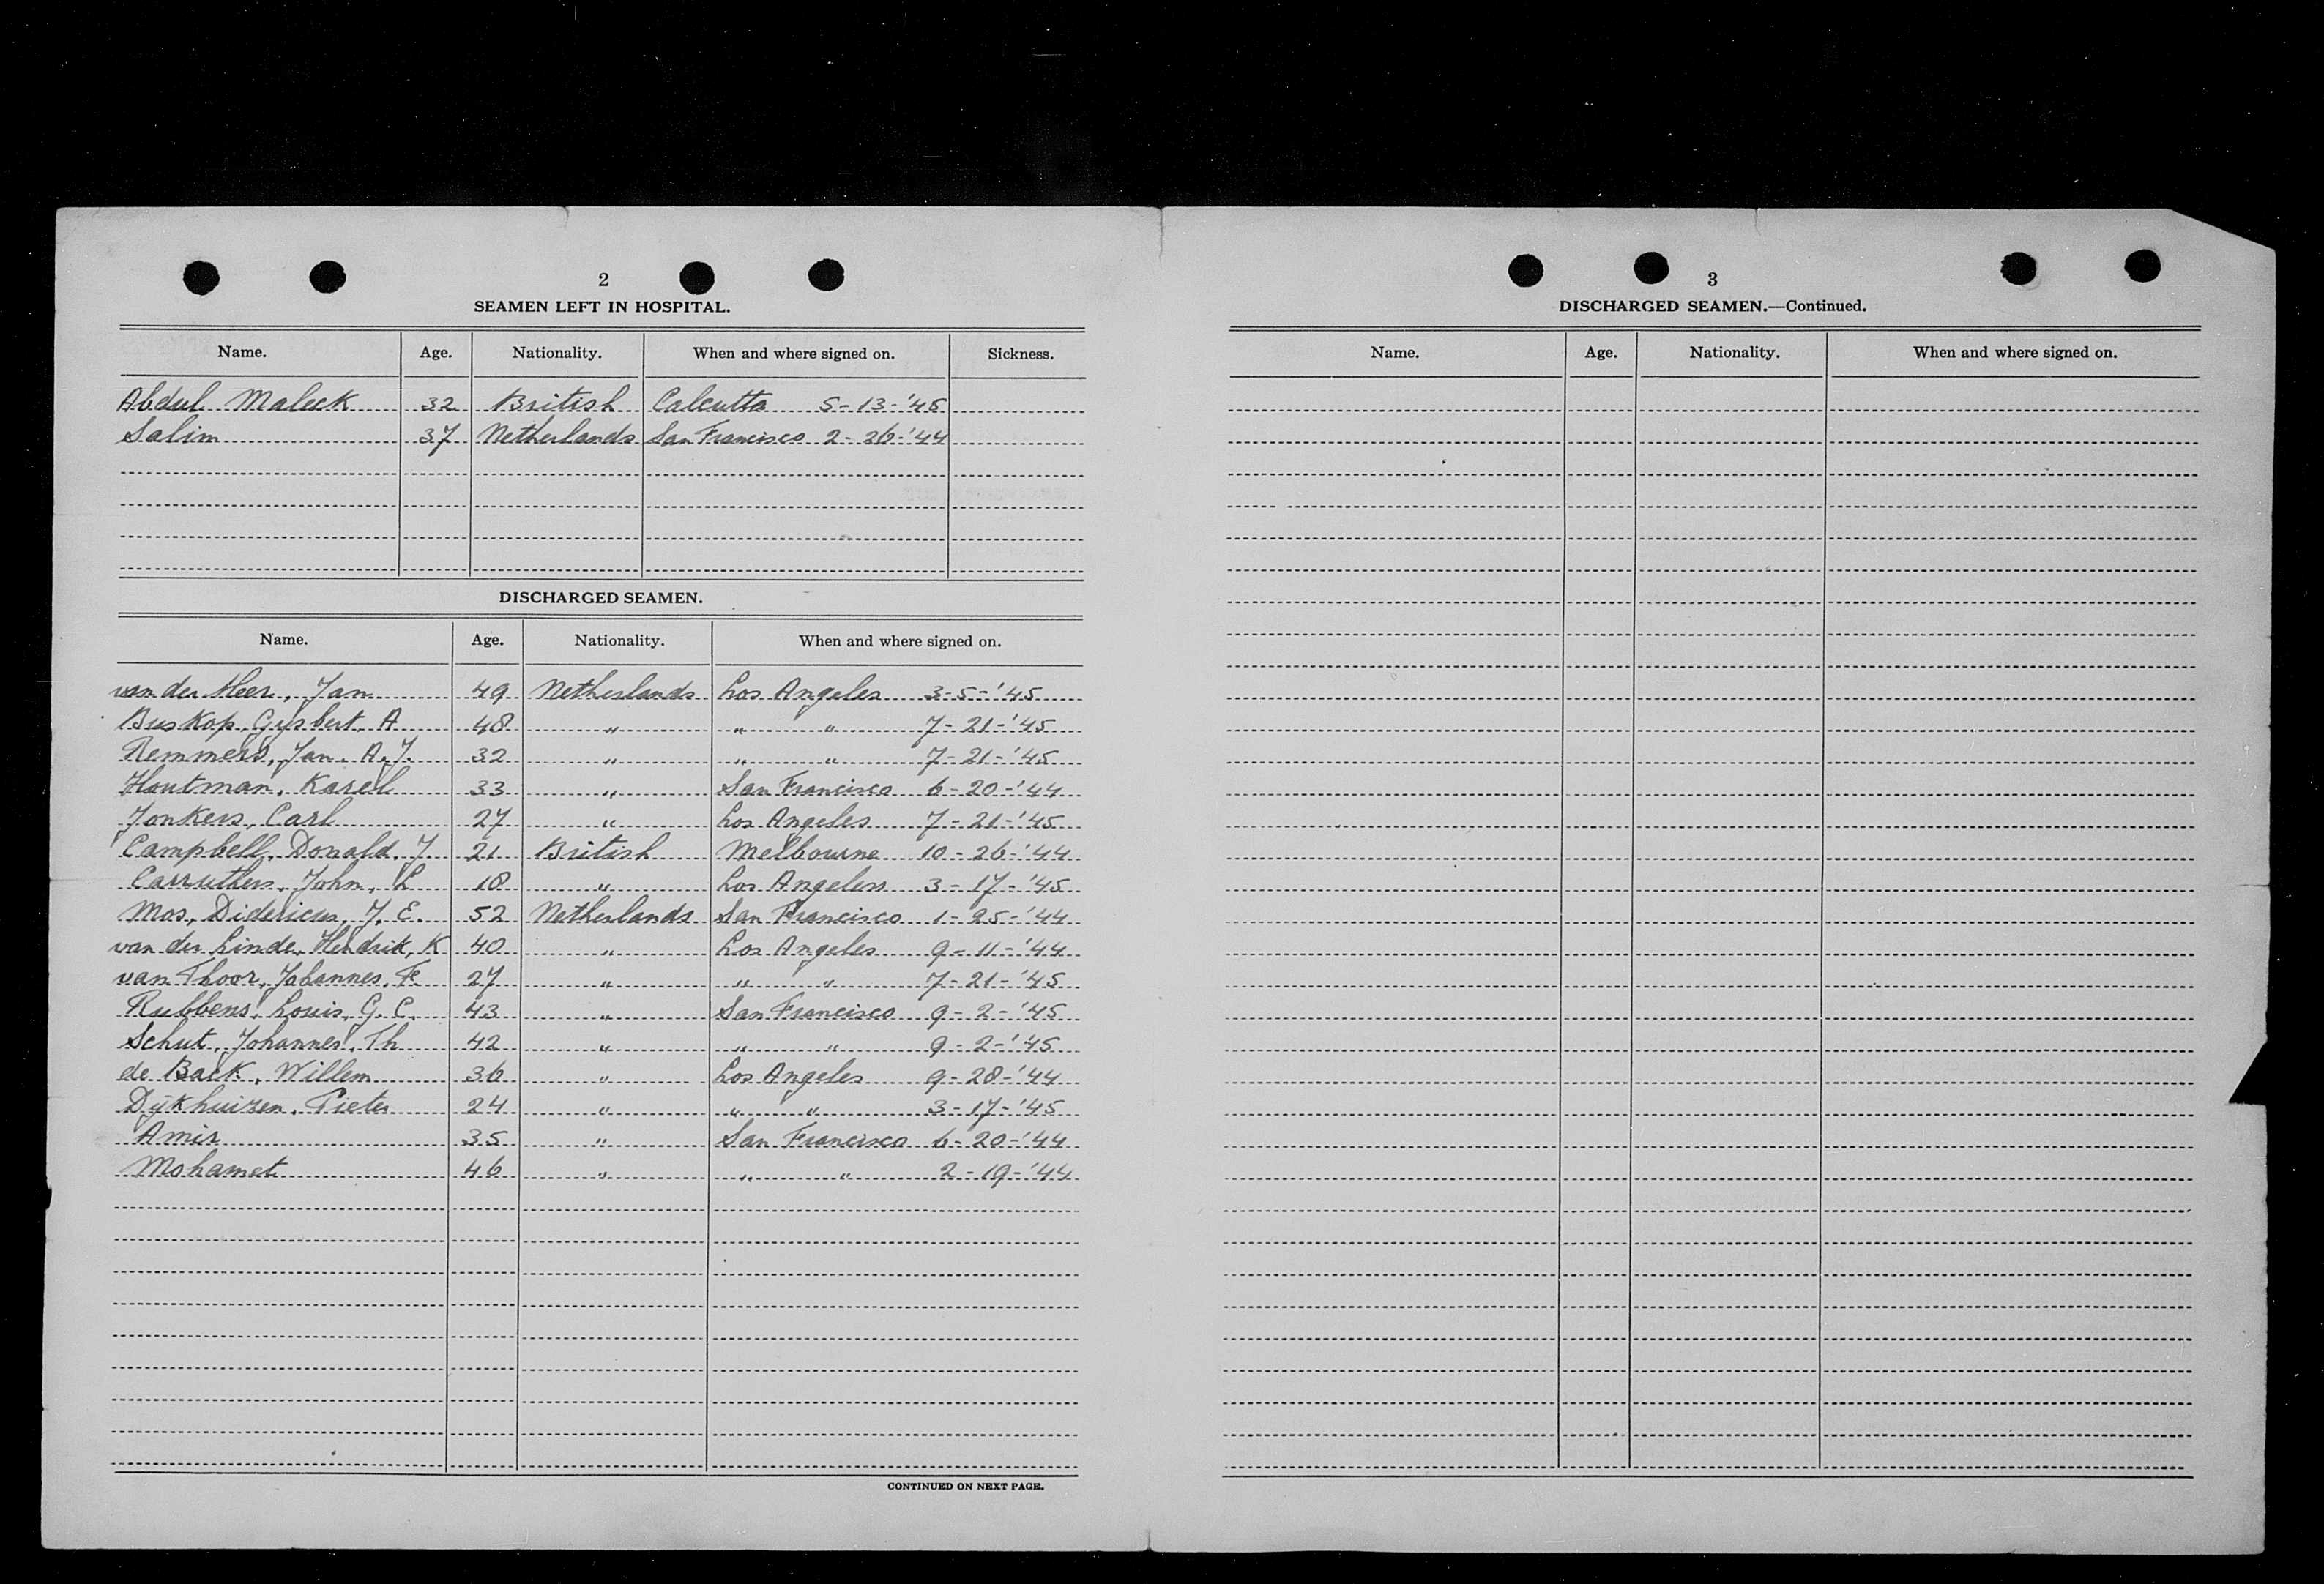 2
SEAMEN LEFT IN HOSPITAL.
Name. Age. Nationality. When and where signed on. Sickness.
Abdul Maleek 32 British Calcutta 5-13-'45
Salim 37 Netherlands San Francisco 2-26-'44
DISCHARGED SEAMEN.
Name. Age. Nationality. When and where signed on.
van der Heer, Jan 49 Netherlands Los Angeles 3-5-'45
Buskop, Gysbert, A 48 " " " 7-21-'45
Remmers, Jan. A.J. 32 " " " 7-21-'45
Houtman, Karel 33 " San Francisco 6-20-'44
Jonkers, Carl 27 " Los Angeles 7-21-'45
Campbell, Donald, J. 21 British Melbourne 10-26-'44
Carruthers, John, L 18 " Los Angeles 3-17-'45
Mos, Didericus, J. E. 52 Netherlands San Francisco 1-25-'44
van der Linde, Hendrik, K 40 " Los Angeles 9-11-'44
van Thoor, Johannes, Fe 27 " " " 7-21-'45
Rubbens, Louis, G. C. 43 " San Francisco 9-2-'45
Schut, Johannes, Th 42 " " " 9-2-'45
de Back, Willem 36 " Los Angeles 9-28-'44
Dijkhuizen, Pieter 24 " " " 3-17-'45
Amir 35 " San Francisco 6-20-'44
Mohamat 46 " " " 2-19-'44
CONTINUED ON NEXT PAGE.
3
DISCHARGED SEAMEN.—Continued.
Name. Age. Nationality. When and where signed on.